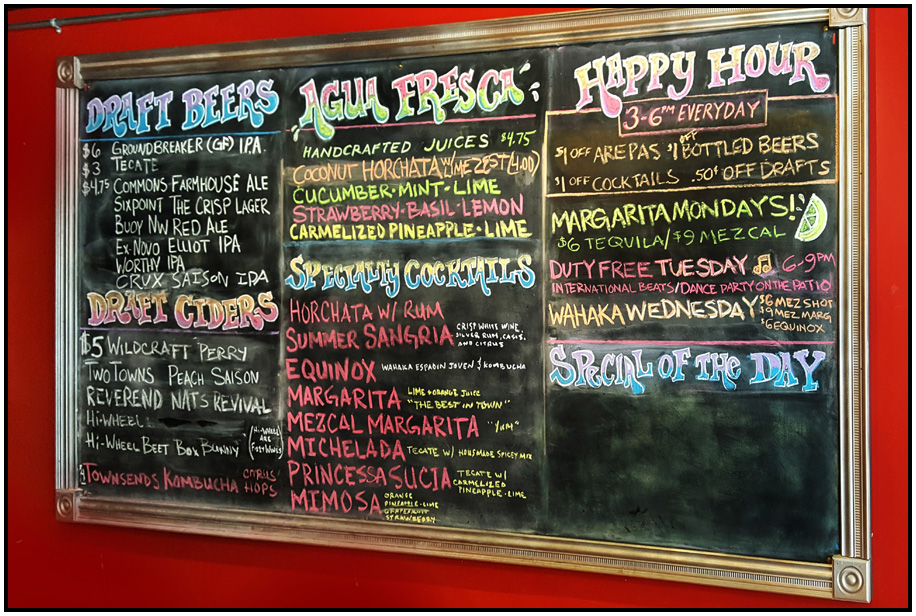 DRAFT BEERS
$6 GROUNDBREAKER (GF) IPA
$3 TECATE
$4.75 COMMONS FARMHOUSE ALE
SIXPOINT THE CRISP LAGER
BUOY NW RED ALE
EX NOVO ELLIOT IPA
WORTHY IPA
CRUX SAISON IPA
DRAFT CIDERS
$5 WILDCRAFT PERRY
TWO TOWNS PEACH SAISON
REVEREND NAT'S REVIVAL
HI-WHEEL
HI-WHEEL BEET BOX BUNNY
(HI-WHEELS
ARE
TOWNSENDS KOMBUCHA CITRUS
HOPS
AGUA FRESCA
HANDCRAFTED JUICES $4.75
COCONUT HORCHATA W/LIME ZEST
CUCUMBER·MINT·LIME
STRAWBERRY·BASIL·LEMON
CARMELIZED PINEAPPLE·LIME
SPECIALTY COCKTAILS
HORCHATA W/ RUM
SUMMER SANGRIA CRISP WHITE WINE,
SILVER RUM, CASIS,
AND CITRUS
EQUINOX WAHAKA ESPADIN JOVEN & KOMBUCHA
MARGARITA LIME & ORANGE JUICE
"THE BEST IN TOWN"
MEZCAL MARGARITA "YUM"
MICHELADA TECATE W/ HOUSMADE SPICEY MIX
PRINCESSA SUCIA TECATE W/
CARMELIZED
PINEAPPLE·LIME
MIMOSA ORANGE
PINEAPPLE·LIME
GRAPEFRUIT
STRAWBERRY
HAPPY HOUR
3-6PM EVERYDAY
$1 OFF AREPAS $1 OFF BOTTLED BEERS
$1 OFF COCKTAILS .50¢ OFF DRAFTS
MARGARITA MONDAYS!
$6 TEQUILA/$9 MEZCAL
DUTY FREE TUESDAY 6-9PM
INTERNATIONAL BEATS/DANCE PARTY ON THE PATIO
WAHAKA WEDNESDAY $6 MEZ SHOT
$9 MEZ MARG
$6 EQUINOX
SPECIAL OF THE DAY